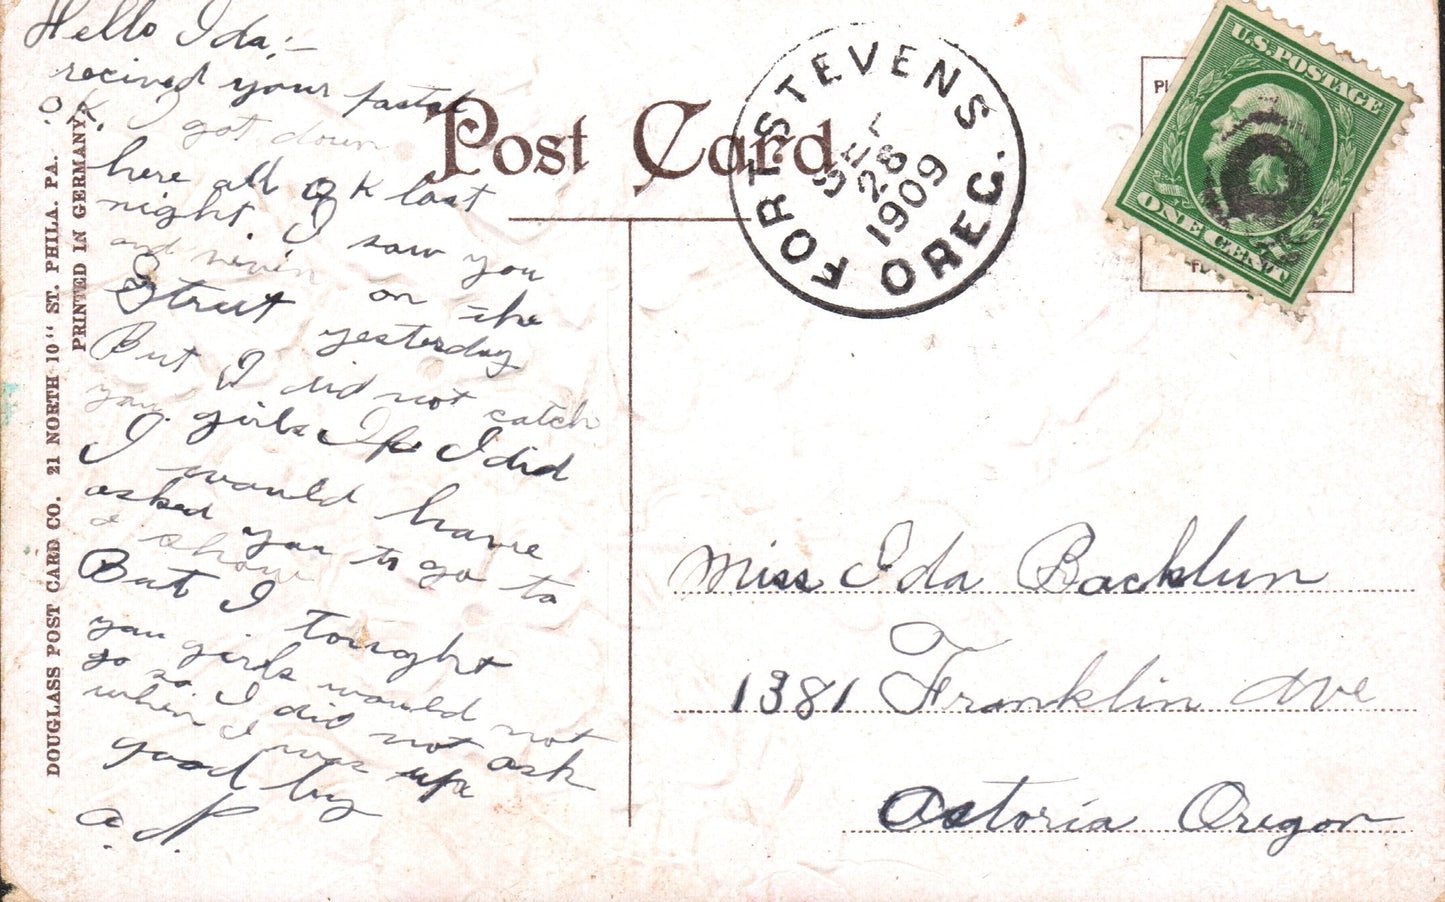 Hello Ida;—
recived your pastel
O.K. I got down
here all O K last
night. I saw you
and
on the
Street yesterday
But I did not catch
you. girls If I did
I would have
asked you to go to
a show
But I tought
you girls would not
go so. I did not ask
when I was up
good by
a.
Post Card
FORT STEVENS
28
1909
OREG.
U.S. POSTAGE
ONE CENT
Miss Ida Backlun
1381 Franklin Ave
Astoria Oregon
DOUGLASS POST CARD CO. 21 NORTH 10" ST. PHILA. PA.
PRINTED IN GERMANY.